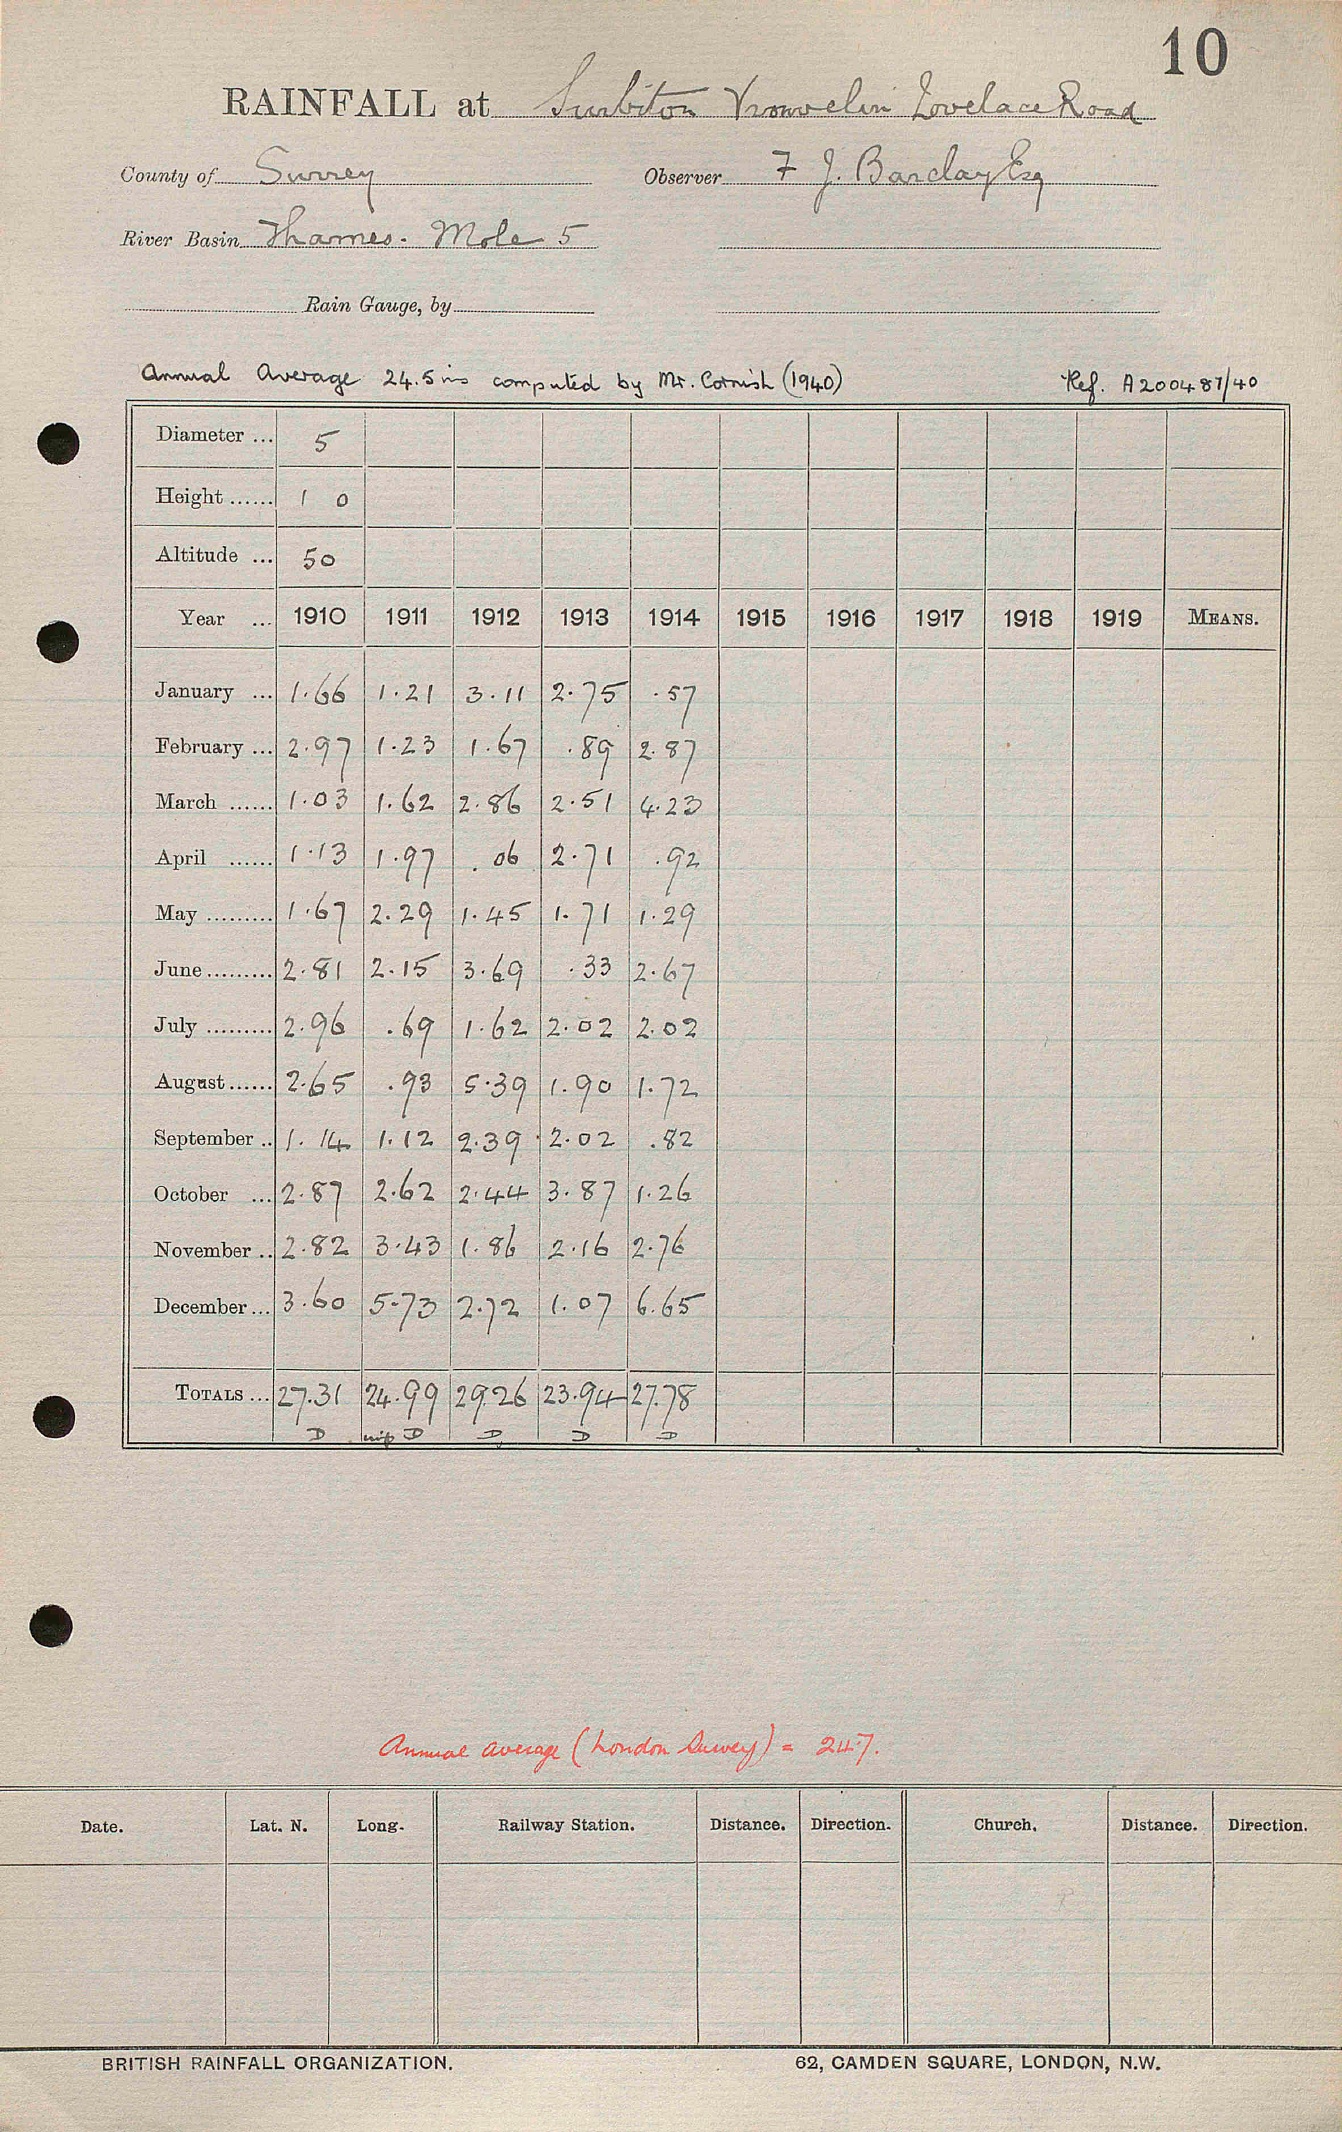 10
RAINFALL at Surbiton Vronvelin Lovelace Road
County of Surrey Observer F J. Barclay Esq
River Basin Thames. Mole 5
Rain Gauge, by
Annual Average 24.5 ins computed by Mr. Cornish (1940) Ref. A200487/40
Diameter ... 5
Height ...... 1 0
Altitude ... 50
Year ... 1910 1911 1912 1913 1914 1915 1916 1917 1918 1919 MEANS.
January ... 1.66 1.21 3.11 2.75 .57
February ... 2.97 1.23 1.67 .89 2.87
March ...... 1.03 1.62 2.86 2.51 4.23
April ...... 1.13 1.97 .06 2.71 .92
May ......... 1.67 2.29 1.45 1.71 1.29
June ......... 2.81 2.15 3.69 .33 2.67
July ......... 2.96 .69 1.62 2.02 2.02
August ...... 2.65 .93 5.39 1.90 1.72
September .. 1.14 1.12 2.39 2.02 .82
October ... 2.87 2.62 2.44 3.87 1.26
November .. 2.82 3.43 1.86 2.16 2.76
December ... 3.60 5.73 2.72 1.07 6.65
TOTALS ... 27.31 24.99 29.26 23.94 27.78
D D D D D
Annual average (London Survey) = 24.7.
Date. Lat. N. Long. Railway Station. Distance. Direction. Church. Distance. Direction.
BRITISH RAINFALL ORGANIZATION. 62, CAMDEN SQUARE, LONDON, N.W.